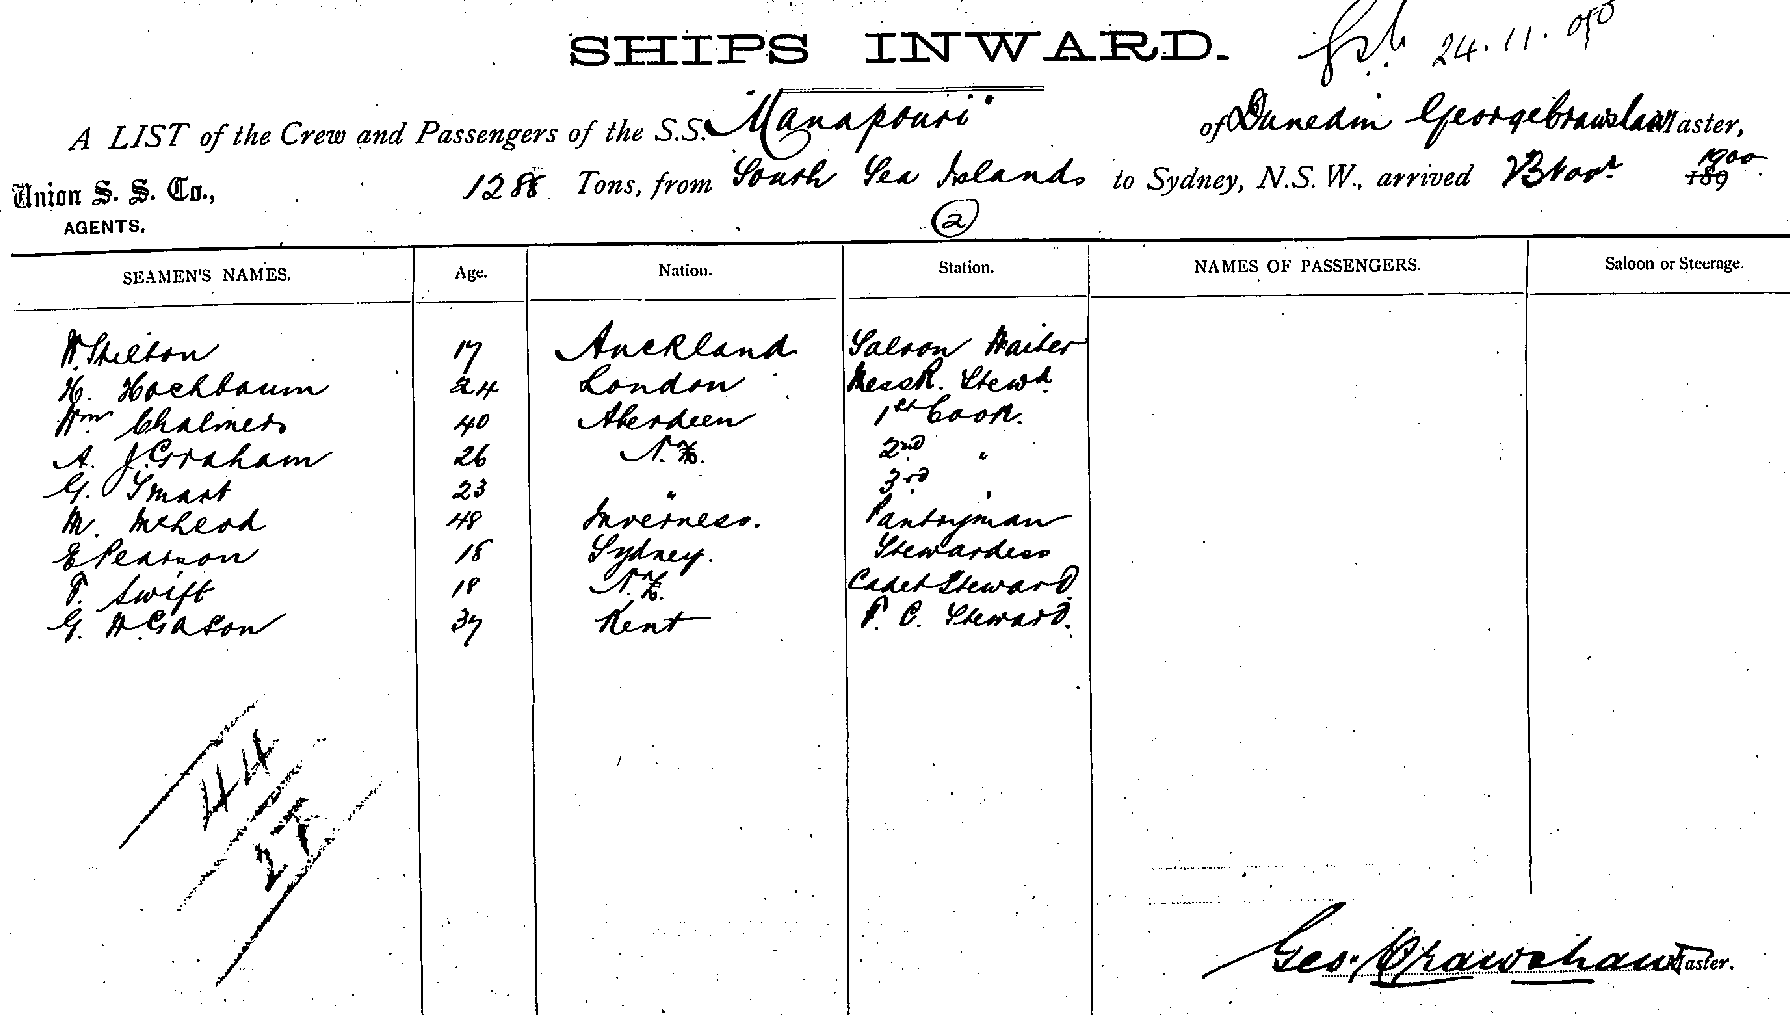 SHIPS INWARD.
24.11.00
A LIST of the Crew and Passengers of the S.S. "Manapouri" of Dunedin George Crawshaw Master,
Union S. S. Co., 1288 Tons, from South Sea Islands to Sydney, N.S.W., arrived 23 Novr 1900 189
AGENTS.
2
SEAMEN'S NAMES. Age. Nation. Station. NAMES OF PASSENGERS. Saloon or Steerage.
W. Shilton 17 Auckland Saloon Waiter
H. Hochbaum 24 London Mess R. Stewd.
Wm Chalmers 40 Aberdeen 1st Cook.
A. J. Graham 26 N.Z. 2nd "
G. Smart 23 " 3rd "
M. McLeod 48 Inverness. Pantryman
E Pearson Sydney. Stewardess
F. Swift 18 N.Z. Cadet Steward.
G. W. Gason 37 Kent F. C. Steward.
44
27
Geo. Crawshaw Master.